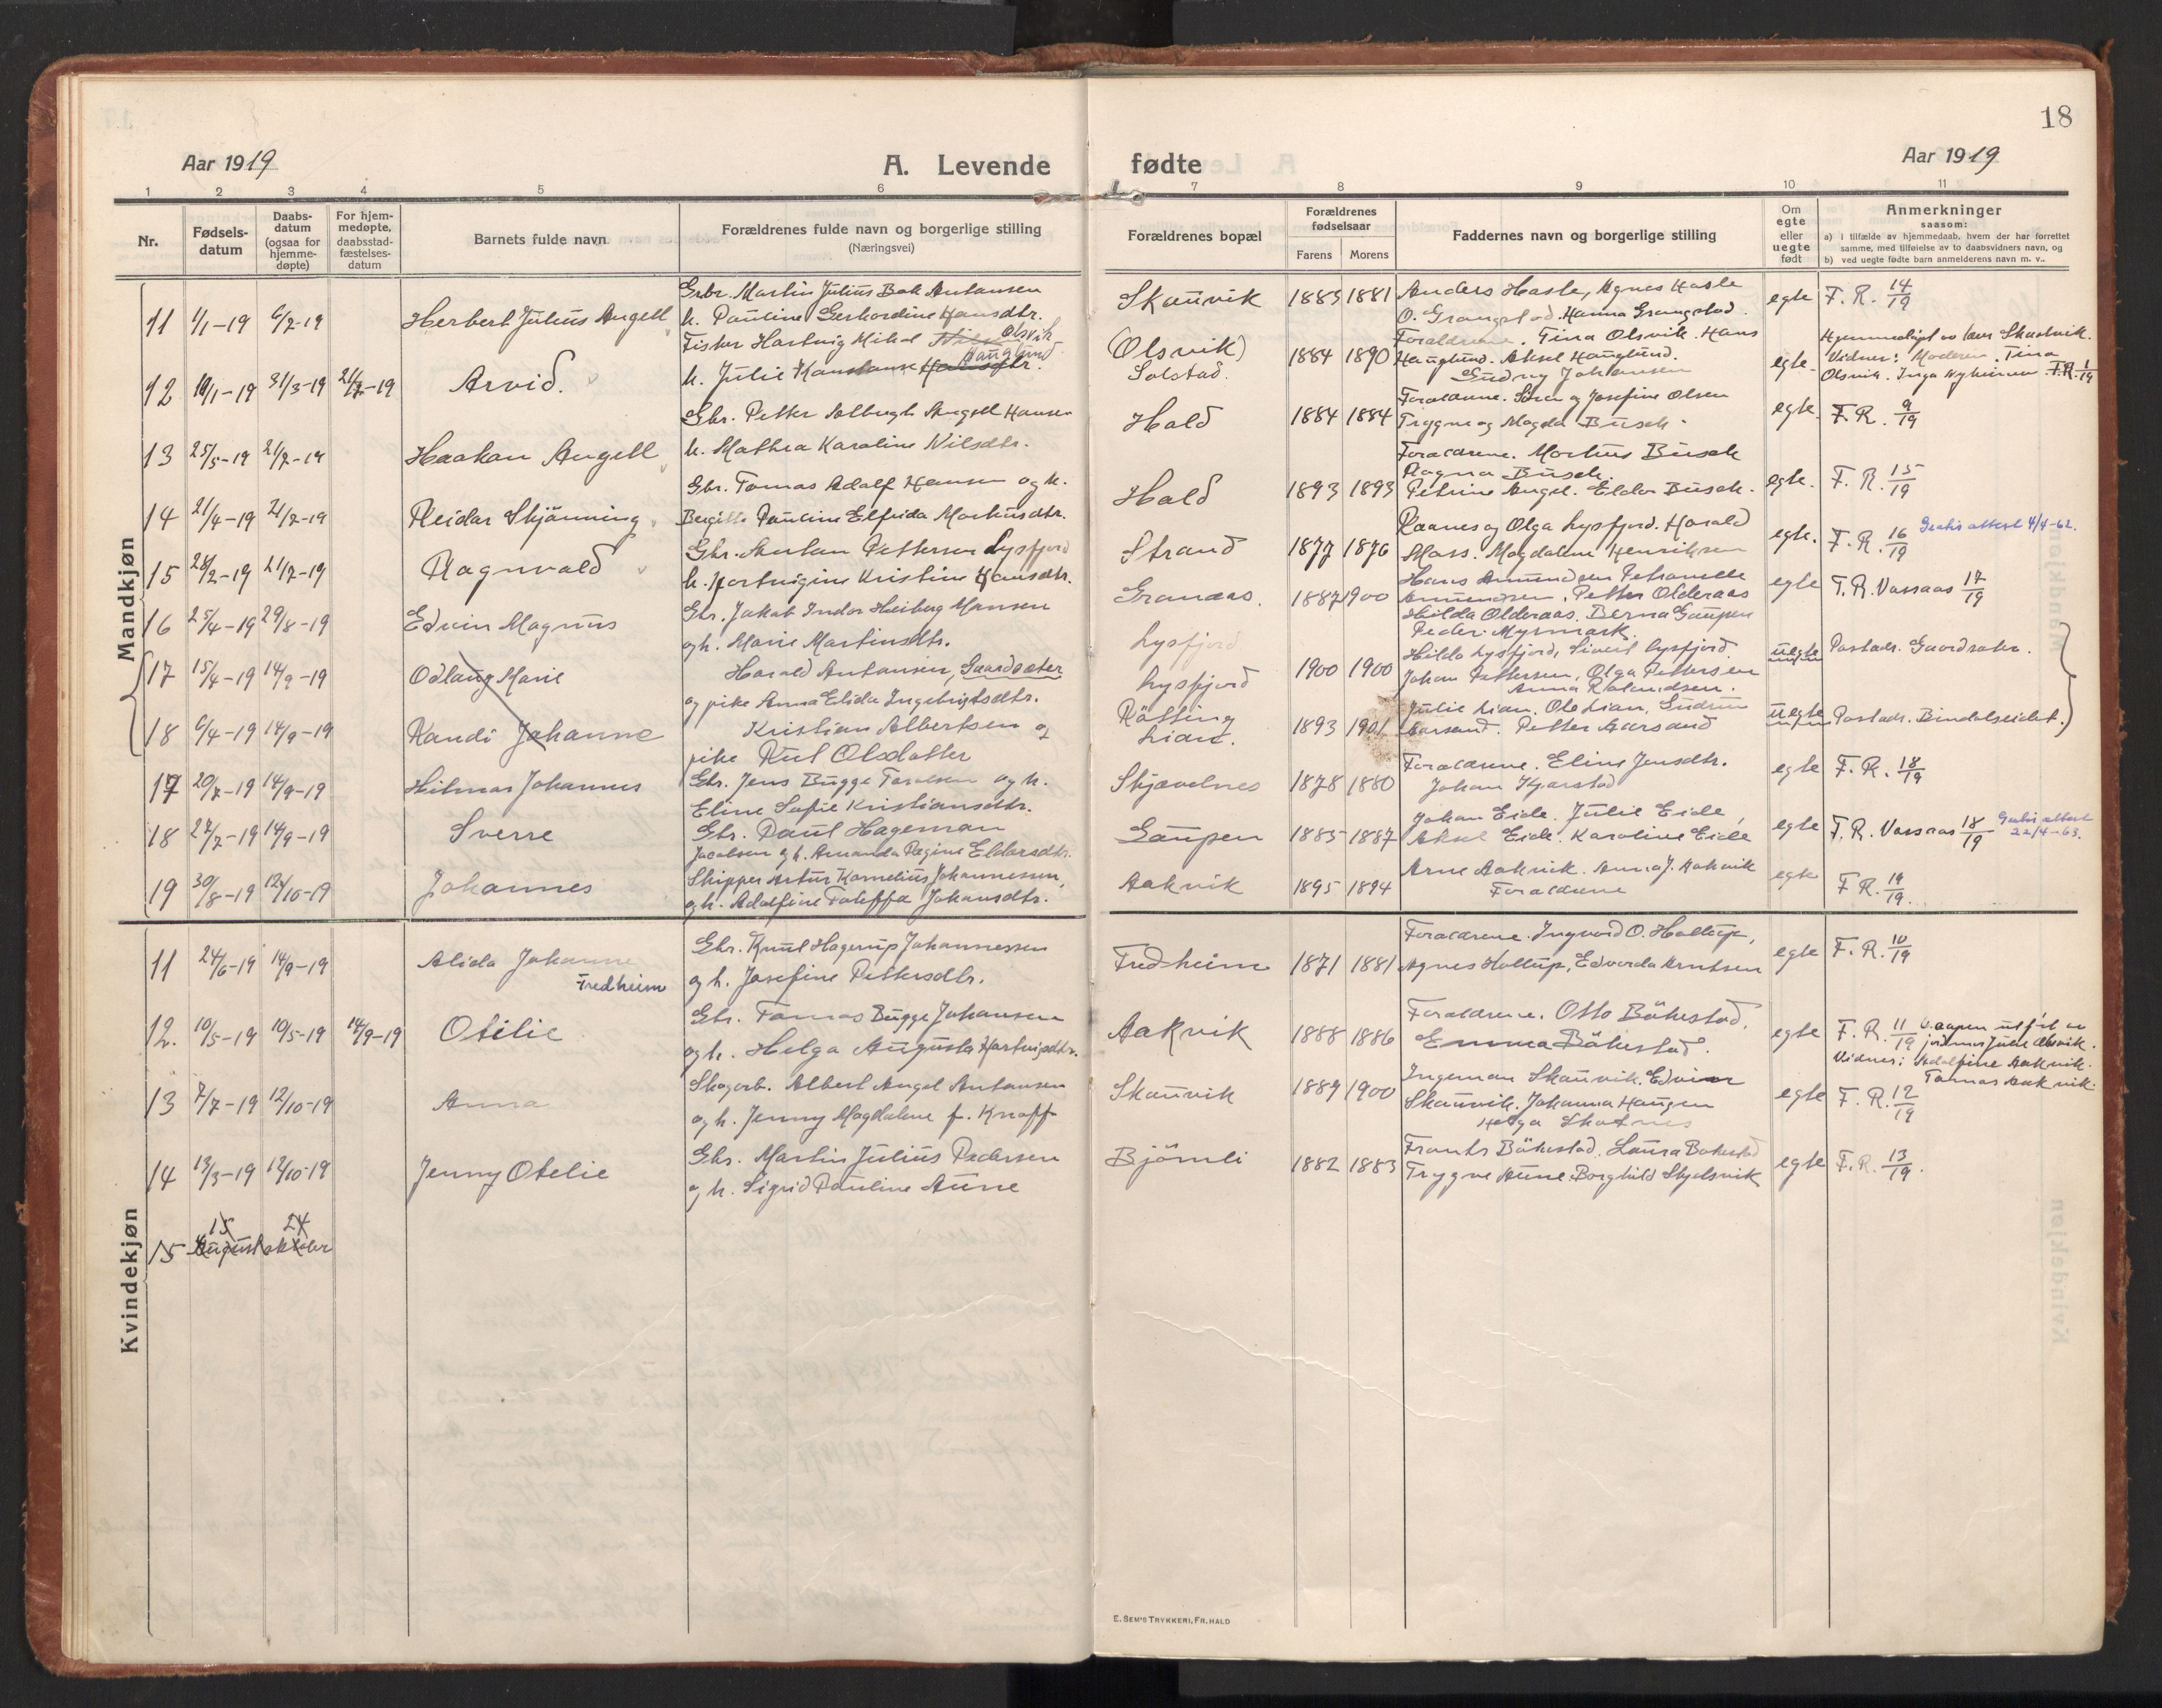 18
Aar 1919
A. Levende fødte
Aar 1919
1 2 3 4 5 6 7 8 9 10 11
Nr.
Fødsels-
datum
Daabs-
datum
(ogsaa for
hjemme-
døpte)
For hjem-
medøpte,
daabsstad-
fæstelses-
datum
Barnets fulde navn
Forældrenes fulde navn og borgerlige stilling
(Næringsvei)
Forældrenes bopæl
Forældrenes
fødselsaar
Farens Morens
Faddernes navn og borgerlige stilling
Om
egte
eller
uegte
født
Anmerkninger
saasom:
a) i tilfælde av hjemmedaab, hvem der har forrettet
samme, med tilføielse av to daabsvidners navn, og
b) ved uegte fødte barn anmelderens navn m. v..
Mandkjøn
11 1/1-19 6/7-19 Herbert Julius Angell
Gbr. Martin Julius Bak Antonsen
h. Pauline Gerhardine Hansdtr.
Skauvik 1883 1881
Anders Hasle, Agnes Hasle
O. Grangstad. Hanna Grangstad.
egte F. R. 14/19
12 19/1-19 31/3-19 21/7-19 Arvid.
Fisker Hartvig Mikal Nils Olsvik
h. Julie Konstanse Hansdtr. Hauglund
(Olsvik)
Solstad.
1884 1890
Foraldrene. Tina Olsvik. Hans
Hauglund. Aksel Hauglund.
Gudny Johansen
egte.
Hjemmedøpt av Skarlvik.
Vidner: Moderen. Tina
Olsvik. Inga F.R. 1/19
13 25/5-19 21/7-19 Haakan Angell
Gbr. Petter Albregt Angell Hansen
h. Mathea Karoline Nilsdtr.
Hald 1884 1884
Foraldrene. Søren og Josefine Olsen
Trygve og Magda Busch.
egte. F. R. 9/19
14 21/4-19 21/7-19 Reidar Skjänning
Gbr. Tomas Adolf Hansen og h.
Bergitte Pauline Elfrida Markusdtr.
Hald 1893 1893
Foraldrene. Markus Busch
Ragna Busch.
Petrine Angel. Eldor Busch.
egte. F. R. 15/19
15 28/2-19 21/7-19 Ragnvald
Gbr. Anton Pettersen Lysfjord
h. Hartvigine Kristine Hansdtr.
Strand 1877 1876
Raanes og Olga Lysfjord. Harald
Moss. Magdalene Henriksen
egte. F. R. 16/19 Gratis attest 4/4-62.
16 25/4-19 29/8-19 Edvin Magnus
Gbr. Jakob Indor Heiberg Monsen
og h. Marie Martinsdtr.
Granaas. 1887 1900
Hans Amundsen Petronelle
Amundsen. Petter Olderaas
Hilda Olderaas. Berna Gaupen
Peder Myrmark.
egte F. R. Vassaas 17/19
17 15/4-19 14/9-19 Odlaug Marie
Harald Antonsen, Gaardsæter
og pike Anna Elida Ingebrigtsdtr.
Lysfjord
Lysfjord
1900 1900
Hilda Lysfjord, Sivert Lysfjord.
Johan Pettersen, Olga Pettersen
Anna Rolandsen.
uegte Postadr. Gaardsæter.
18 6/4-19 14/9-19 Randi Johanne
Kristian Albertsen og
pike Rut Olsdatter
Røtting
Lian.
1893 1901
Julie Lian. Ole Lian. Gudrun
Aarsand. Petter Aarsand
uegte Postadr. Bindalseidet.
17 20/7-19 14/9-19 Hilmar Johannes
Gbr. Jens Bugge Taralsen og h.
Eline Sofie Kristiansdtr.
Skjævelnes 1878 1880
Foraldrene. Eline Jensdtr.
Johan Kjærstad
egte F. R. 18/19
18 27/7-19 14/9-19 Sverre
Gbr. Paul Hageman
Jacobsen og h. Amanda Regine Eldorsdtr.
Gaupen 1885 1887
Johan Eide. Julie Eide,
Aksel Eide. Karoline Eide
egte F. R. Vassaas 18/19 Gratis attest 22/4-63.
19 30/8-19 12/10-19 Johannes
Skipper Artur Kornelius Johannessen,
og h. Adolfine Johansdtr.
Aakvik 1895 1894
Arne Aakvik. Anna J. Aakvik
Foraldrene
egte F. R. 19/19.
Kvindekjøn
11 24/6-19 14/9-19 Alida Johanne
Fredheim
Gbr. Knut Hagerup Johannessen
og h. Josefine Pettersdtr.
Fredheim 1871 1881
Foraldrene. Ingvard O. Holtup,
Agnes Holtup, Edvarda Arntsen
egte F. R. 10/19
12. 10/5-19 10/5-19 14/9-19 Otilie
Gbr. Tomas Bugge Johansen
og h. Helga Augusta Hartvigsdtr.
Aakvik 1888 1886
Foraldrene. Otto Bökestad.
Emma Bökestad.
egte F. R. 11/19 Daapen utført av
jordmor Julie Olsvik.
Vidner: Adolfine Aakvik.
Tomas Aakvik.
13 7/7-19 12/10-19 Anna
Skogarb. Albert Angel Antonsen
og h. Jenny Magdalene f. Knoff
Skauvik 1889 1900
Ingeman Skauvik. Edvin
Skauvik. Johanna Haugen
Helga Skotnes
egte F. R. 12/19
14 13/3-19 12/10-19 Jenny Otelie
Gbr. Martin Julius Pedersen
og h. Sigrid Pauline Aune
Björnli 1882 1883
Frants Bökestad. Laura Bökestad
Trygve Aune. Borghild Skjelsvik
egte F. R. 13/19.
15 15 August 24 oktober
E. SEM'S TRYKKERI, FR. HALD